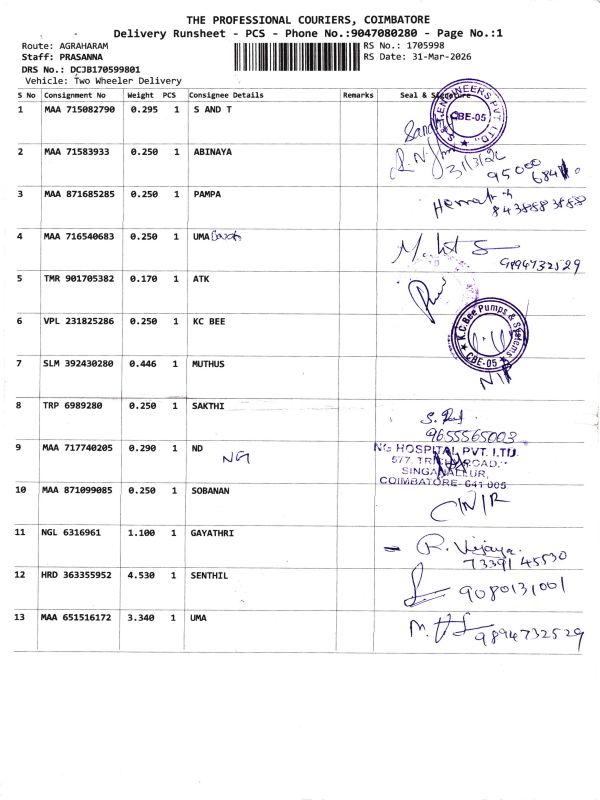 THE PROFESSIONAL COURIERS, COIMBATORE
Delivery Runsheet - PCS - Phone No.:9047080280 - Page No.:1
Route: AGRAHARAM
RS No.: 1705998
Staff: PRASANNA
RS Date: 31-Mar-2026
DRS No.: DCJB170599801
Vehicle: Two Wheeler Delivery
S No Consignment No Weight PCS Consignee Details Remarks Seal & Signature
1 MAA 715082790 0.295 1 S AND T
ENGINEERS PVT. LTD. CBE-05
2 MAA 71583933 0.250 1 ABINAYA
31/3/26
95000
3 MAA 871685285 0.250 1 PAMPA
8438883888
4 MAA 716540683 0.250 1 UMA
9894732529
5 TMR 901705382 0.170 1 ATK
6 VPL 231825286 0.250 1 KC BEE
K.C.Bee Pumps & Systems
CBE-05
7 SLM 392430280 0.446 1 MUTHUS
8 TRP 6989280 0.250 1 SAKTHI
9655565003
9 MAA 717740205 0.290 1 ND
NG
NG HOSPITAL PVT. LTD.
577, ROAD,
SINGANALLUR,
COIMBATORE-641 005
10 MAA 871099085 0.250 1 SOBANAN
11 NGL 6316961 1.100 1 GAYATHRI
R. Vijaya
73391 45530
12 HRD 363355952 4.530 1 SENTHIL
9080131001
13 MAA 651516172 3.340 1 UMA
9894732529